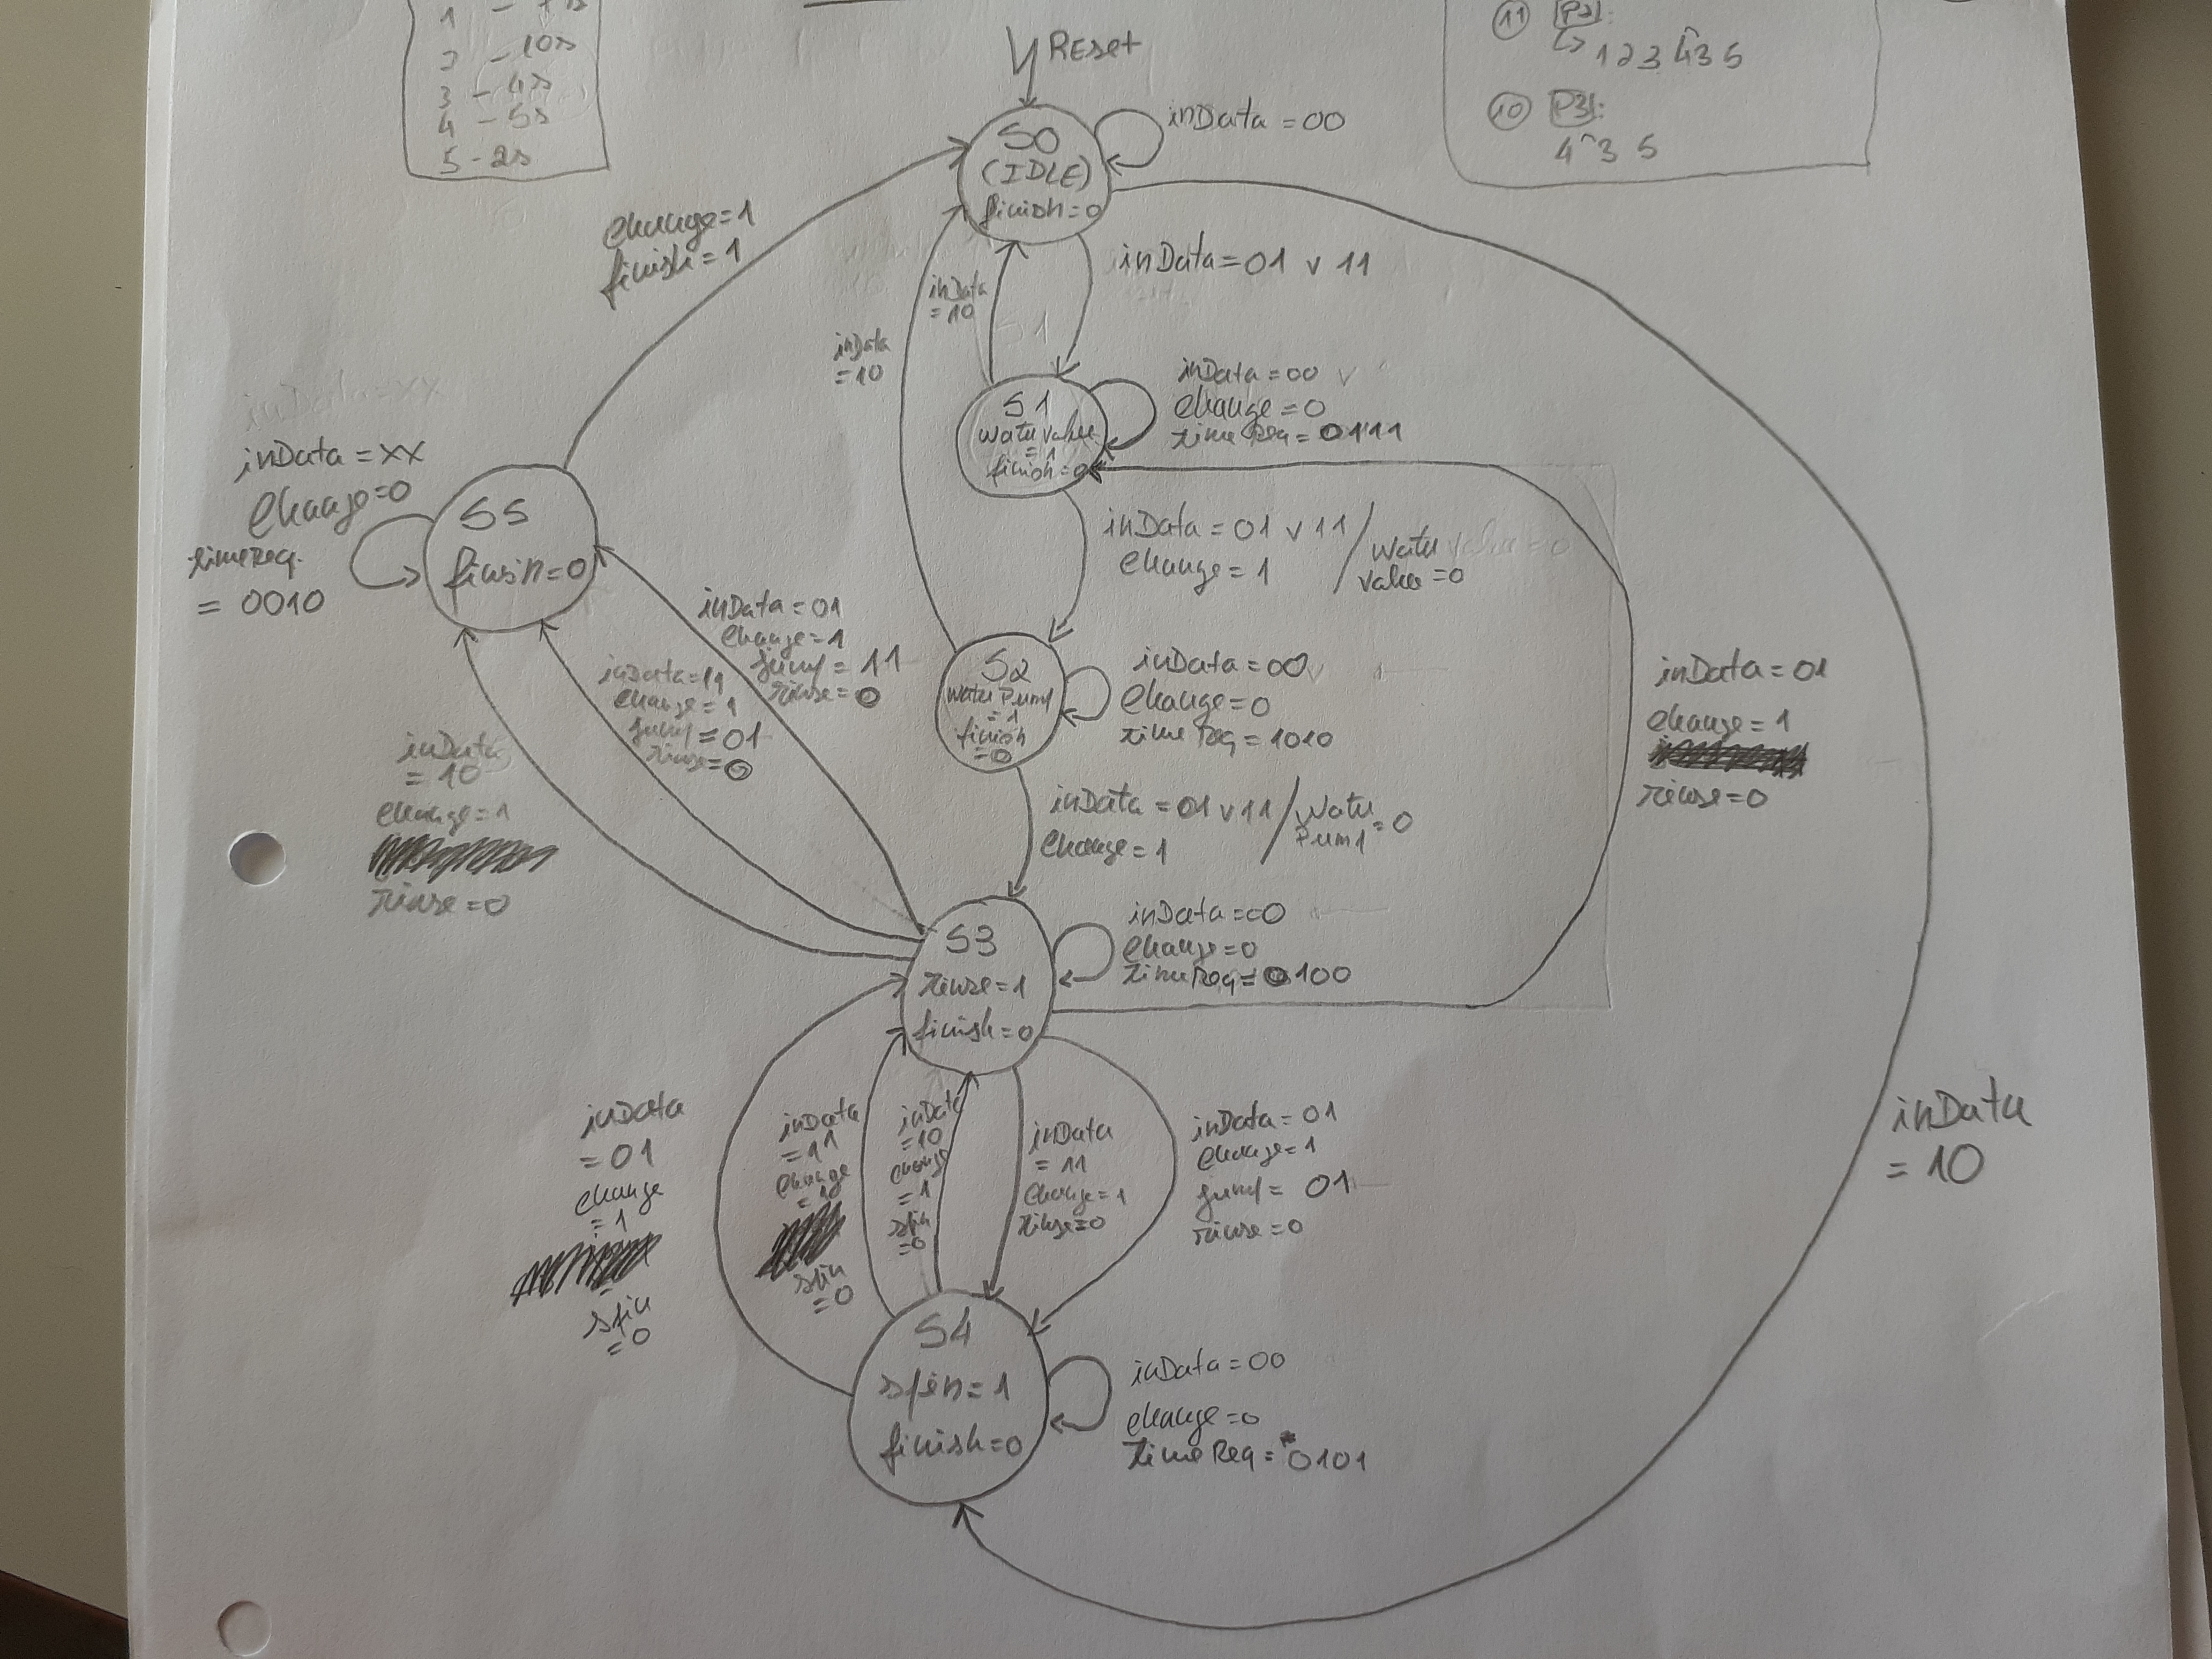 2 - 10s
3 - 4s
4 - 5s
5 - 2s
11 P2:
↳ 1 2 3 4 3 5
10 P3:
4 3 5
Reset
S0
(IDLE)
finish=0
inData = 00
change=1
finish=1
inData = 01 v 11
inData
= 10
inData
= 10
S1
finish=0
inData = 00
change = 0
timeReq = 0111
inData = 01 v 11 /
change = 1
value = 0
inData = XX
change=0
timeReq
= 0010
S5
finish=0
S2
finish
=0
inData = 00
change = 0
timeReq = 1010
inData = 01
change = 1
jump = 11
rinse = 0
inData = 11
change = 1
jump = 01
rinse = 0
inData
= 10
change = 1
rinse = 0
inData = 01
change = 1
rinse = 0
inData = 01 v 11 /
change = 1
= 0
S3
rinse = 1
finish = 0
inData = 00
change = 0
timeReq = 0100
inData
= 01
change
= 1
spin
= 0
inData
= 11
change
= 1
spin
= 0
inData
= 10
change
= 1
spin
= 0
inData
= 11
change = 1
rinse = 0
inData = 01
change = 1
jump = 01
rinse = 0
inData
= 10
S4
spin = 1
finish = 0
inData = 00
change = 0
timeReq = 0101